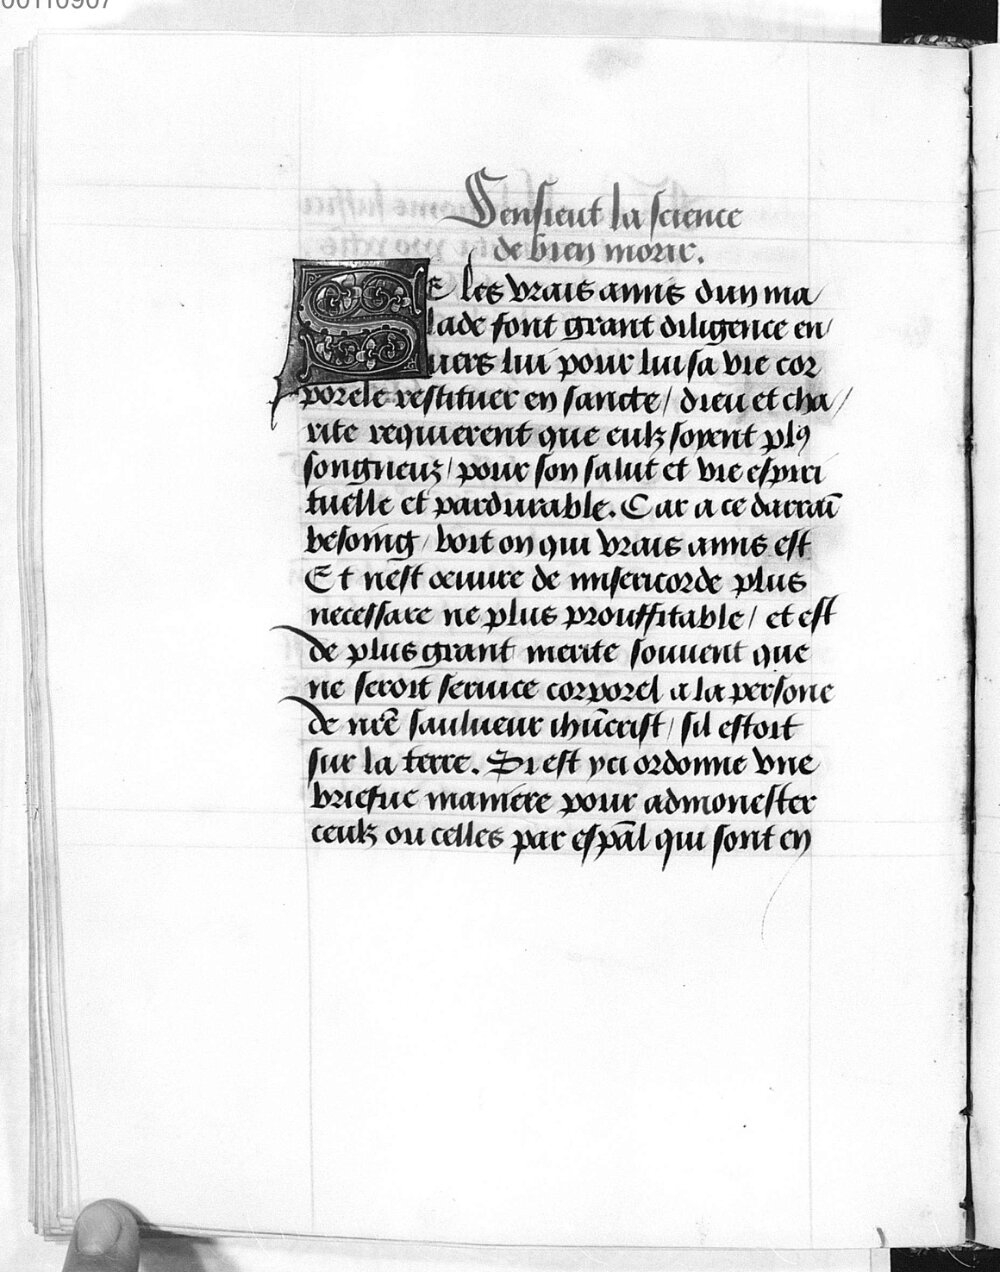 00110907
Sensieut la science
de bien morir.
SE les vrais amis dun ma
lade font grant diligence en
uers lui pour lui sa vie cor
porele restituer en sancte / dieu et cha /
rite requierent que eulz soyent plꝰ
songneuz / pour son salut et vie espiri
tuelle et pardurable. Car a ce darraī
besoing / voit on qui vrais amis est
Et nest oeuure de misericorde plus
necessare ne plus prouffitable / et est
de plus grant merite souuent que
ne seroit seruice corporel a la persone
de nr̄e saulueur ihūcrist / sil estoit
sur la terre. Si est yci ordonne vne
briefue maniere pour admonester
ceulz ou celles par esp̄al qui sont en